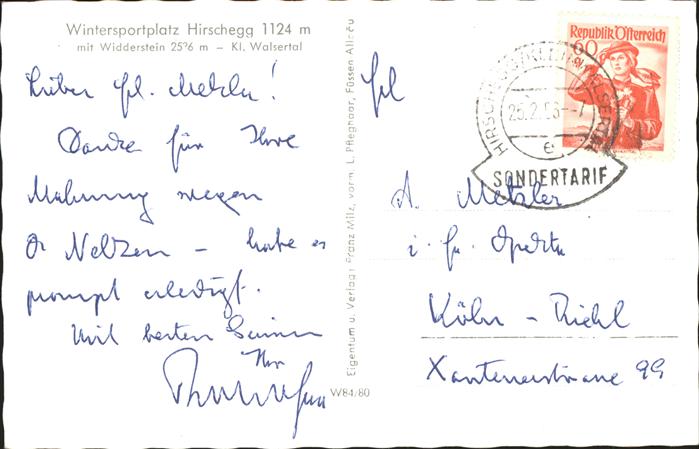 Wintersportplatz Hirschegg 1124 m
mit Widderstein 25?6 m – Kl. Walsertal
Lieber Frl. Metzler!
Danke für Ihre
Mahnung wegen
Dr Neltzen – habe es
prompt erledigt.
Mit besten
Ihr
Eigentum u. Verlag: Franz Milz, vorm. L. Pfleghaar, Füssen Allgäu
W84/80
Republik Österreich
60 g
HIRSCHEGG
25.2.53
e
SONDERTARIF
Frl
A. Metzler
i. Fa.
Köln – Riehl
Xantenerstrasse 99